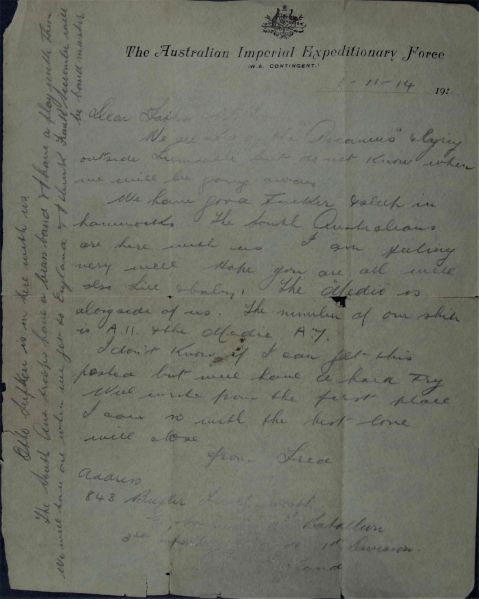 The Australian Imperial Expeditionary Force
(W.A. CONTINGENT.)
1-11-14 191
Dear Father
We are on the "Ascanius" & laying
outside Fremantle but do not know when
we will be going away
We have good Tucker & sleep in
hammocks. The South Australians
are here with us I am feeling
very well Hope you are all well
also & baby. The Medic is
alongside of us. The number of our ship
is A.11. & the Medic A.7.
I don't know if I can get this
posted but will have a hard try
Will write from the first place
I can so with the best love
will close
from Fred
Address
843 Bugler
Battalion
3rd 1st Division.
Otto is in here with us
The South Aus troops have a brass band & I have a play with them
We will have one when we get to England & I think Frank will
be band master